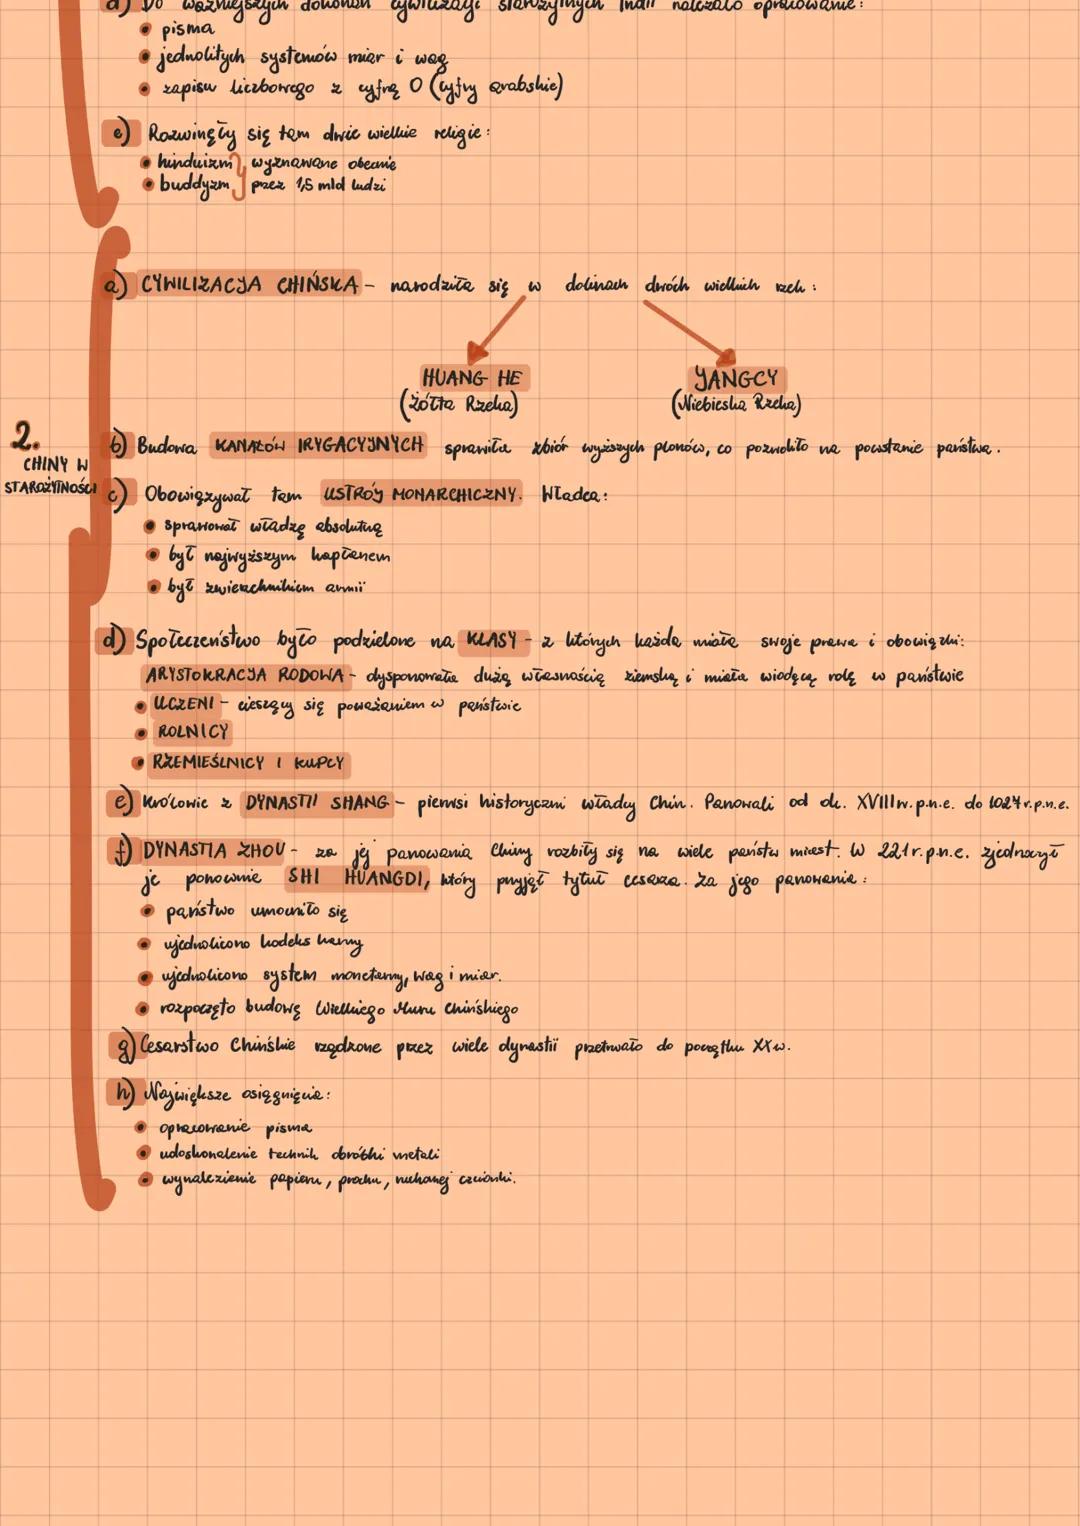 d) Do ważniejszych dokonań cywilizacji starożytnych Indii należało opracowanie:
• pisma
• jednolitych systemów miar i wag
• zapisu liczbowego z cyfrą 0 (cyfry arabskie)
e) Rozwinęły się tam dwie wielkie religie:
• hinduizm } wyznawane obecnie
• buddyzm } przez 1,5 mld ludzi
a) CYWILIZACJA CHIŃSKA - narodziła się w dolinach dwóch wielkich rzek:
HUANG HE YANGCY
(Żółta Rzeka) (Niebieska Rzeka)
2.
CHINY W
STAROŻYTNOŚCI
b) Budowa KANAŁÓW IRYGACYJNYCH sprawiła zbiór wyższych plonów, co pozwoliło na powstanie państwa.
c) Obowiązywał tam USTRÓJ MONARCHICZNY. Władca:
• sprawował władzę absolutną
• był najwyższym kapłanem
• był zwierzchnikiem armii
d) Społeczeństwo było podzielone na KLASY - z których każda miała swoje prawa i obowiązki:
ARYSTOKRACJA RODOWA - dysponowała dużą własnością ziemską i miała wiodącą rolę w państwie
• UCZENI - cieszący się poważaniem w państwie
• ROLNICY
• RZEMIEŚLNICY I KUPCY
e) Królowie z DYNASTII SHANG - pierwsi historyczni władcy Chin. Panowali od ok. XVIII w. p.n.e. do 1027 r. p.n.e.
f) DYNASTIA ZHOU - za jej panowania Chiny rozbiły się na wiele państw miast. W 221 r. p.n.e. zjednoczył
je ponownie SHI HUANGDI, który przyjął tytuł cesarza. Za jego panowania:
• państwo umocniło się
• ujednolicono kodeks karny
• ujednolicono system monetarny, wag i miar.
• rozpoczęto budowę Wielkiego Muru Chińskiego
g) Cesarstwo Chińskie rządzone przez wiele dynastii przetrwało do początku XX w.
h) Największe osiągnięcia:
• opracowanie pisma
• udoskonalenie technik obróbki metali
• wynalezienie papieru, prochu, ruchomej czcionki.